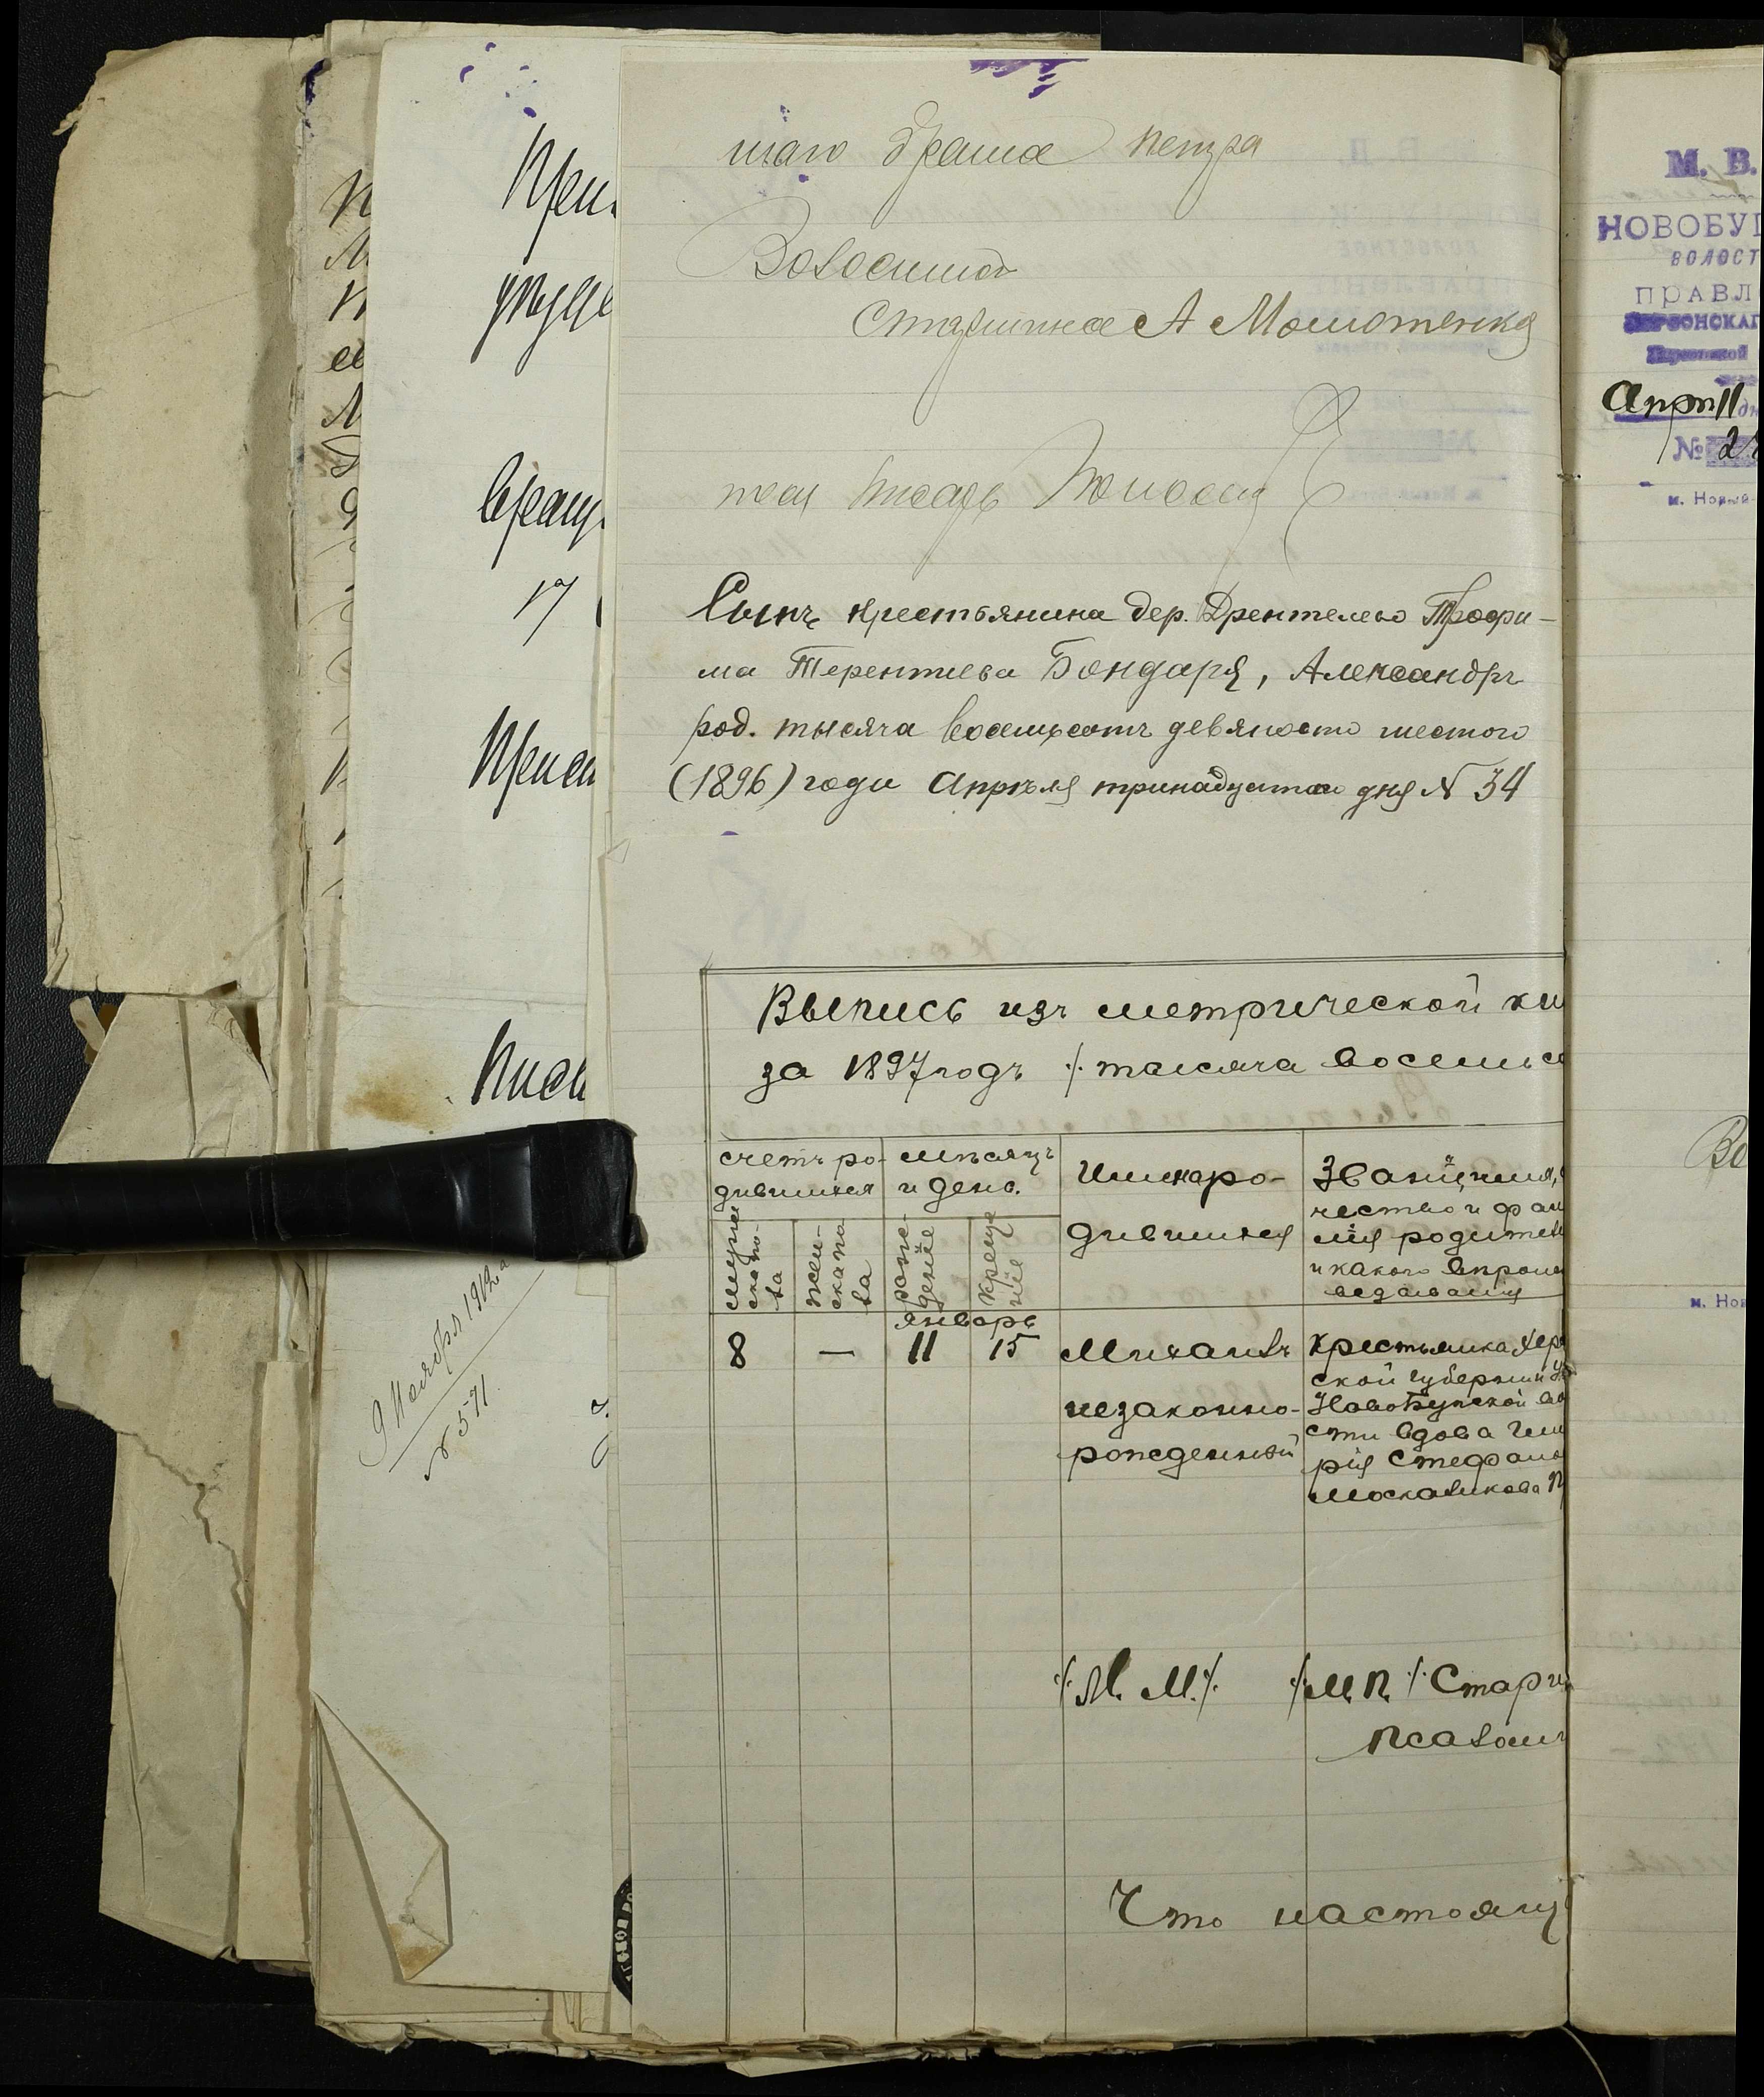 шаго брата Петра
Волостной
Старшина А
писарь
Сынъ крестьянина дер. Дрентельно Трофи-
ма Терентиева Бондаря, Александръ
род. тысяча восемьсотъ девяносто шестого
(1896) года Апрѣля тринадцатаго дня N 34
Выпись изъ метрической кн
за 1897 годъ /. тысяча восемьсо
счетъ ро-
дившихся
мѣсяцъ
и день.
Имя ро-
дившихся
Званіе, имя,
чество и фам
лія родител
и какого вѣроис
ведыванія
мужe
ско по-
ла
жен-
ска по
ла
рож-
деніе
креще
ніе
январь
8 — 11 15 Михаилъ
незаконно-
рожденный
Крестьянка Хер
ской губерніи
НовоБугской во
сти вдова
рія Стефано
Москаликова П
/. М. М. /. /. М. П. /. Стар
псалом
Что настоящ
При
17
9 Ноября 1912
№ 571
М. В.
НОВОБУГ
ВОЛОСТ
ПРАВЛ
№
м. Новый
Во
м. Нов